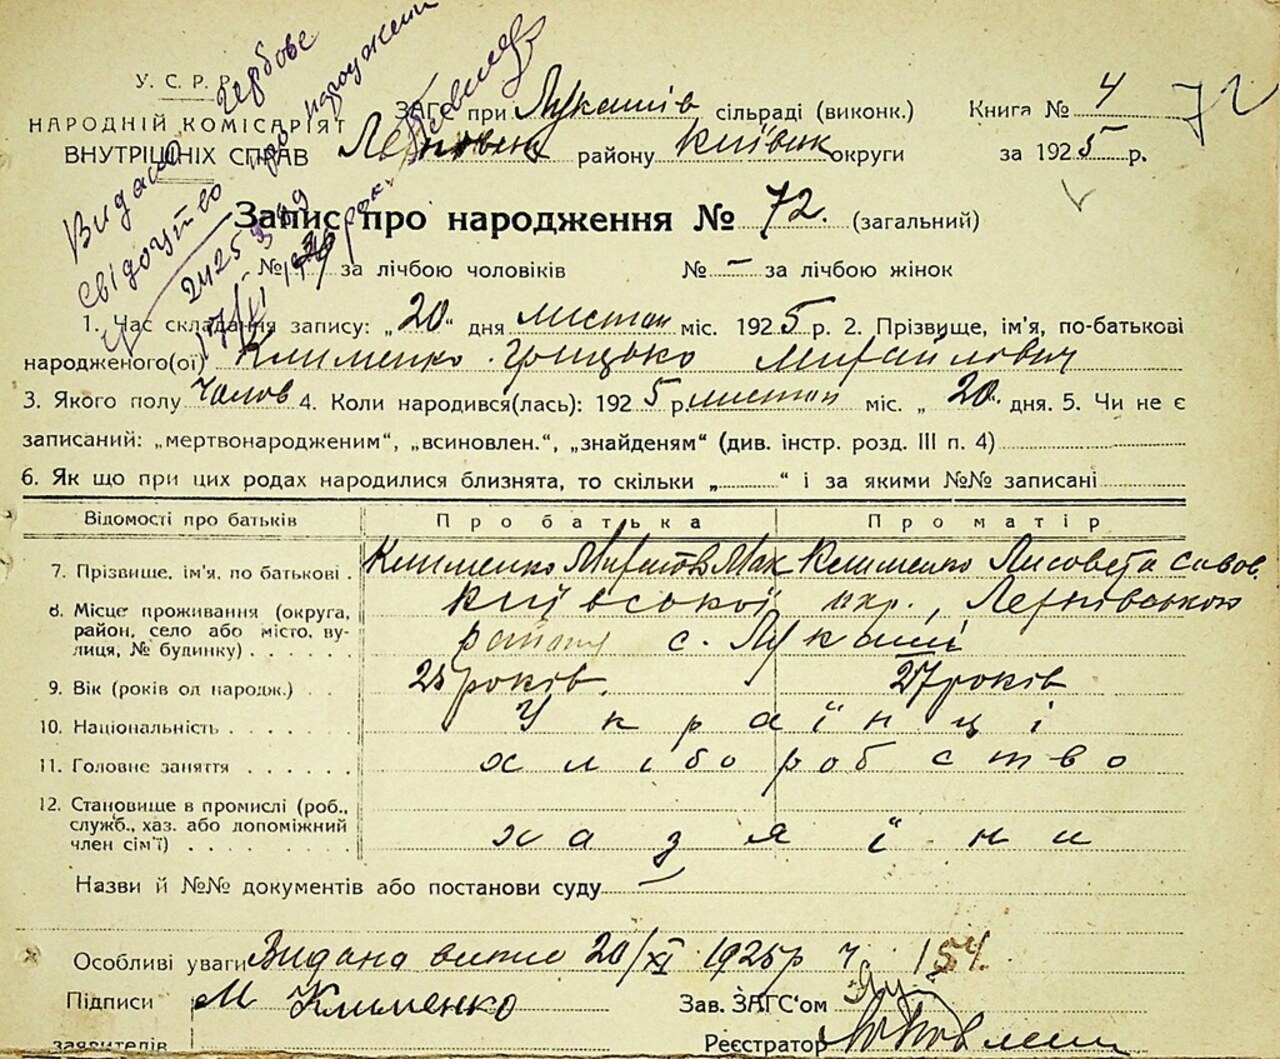 У. С. Р. Р.
НАРОДНІЙ КОМІСАРІЯТ
ВНУТРІШНІХ СПРАВ
Видано Гербове
свідоцтво про народжен
ЗАГС при Лукашів сільраді (виконк.)
району Київськ округи
Книга № 4
за 1925 р.
72
Запис про народження № 72. (загальний)
№ за лічбою чоловіків № – за лічбою жінок
1. Час складання запису: „20“ дня листоп міс. 1925 р. 2. Прізвище, ім'я, по-батькові
народженого(ої) Клименко Грицько Михайлович
3. Якого полу Чолов 4. Коли народився(лась): 1925 р. листоп міс. „20“ дня. 5. Чи не є
записаний: „мертвонародженим“, „всиновлен.“, „знайденям“ (див. інстр. розд. III п. 4)
6. Як що при цих родах народилися близнята, то скільки „ “ і за якими №№ записані
Відомості про батьків Про батька Про матір
7. Прізвише, ім'я, по батькові . Клименко Мак Клименко Лисовета Савов.
8. Місце проживання (округа, район, село або місто, вулиця, № будинку) Київської окр.,
району с. Лукаші
9. Вік (років од народж.) років. 27 років
10. Національність Українці
11. Головне заняття хліборобство
12. Становище в промислі (роб.,
служб., хаз. або допоміжний
член сім'ї) хазяїни
Назви й №№ документів або постанови суду –
Особливі уваги Видана 20/XI 1925 р ч 154.
Підписи М Клименко Зав. ЗАГС'ом
заявителів Реєстратор